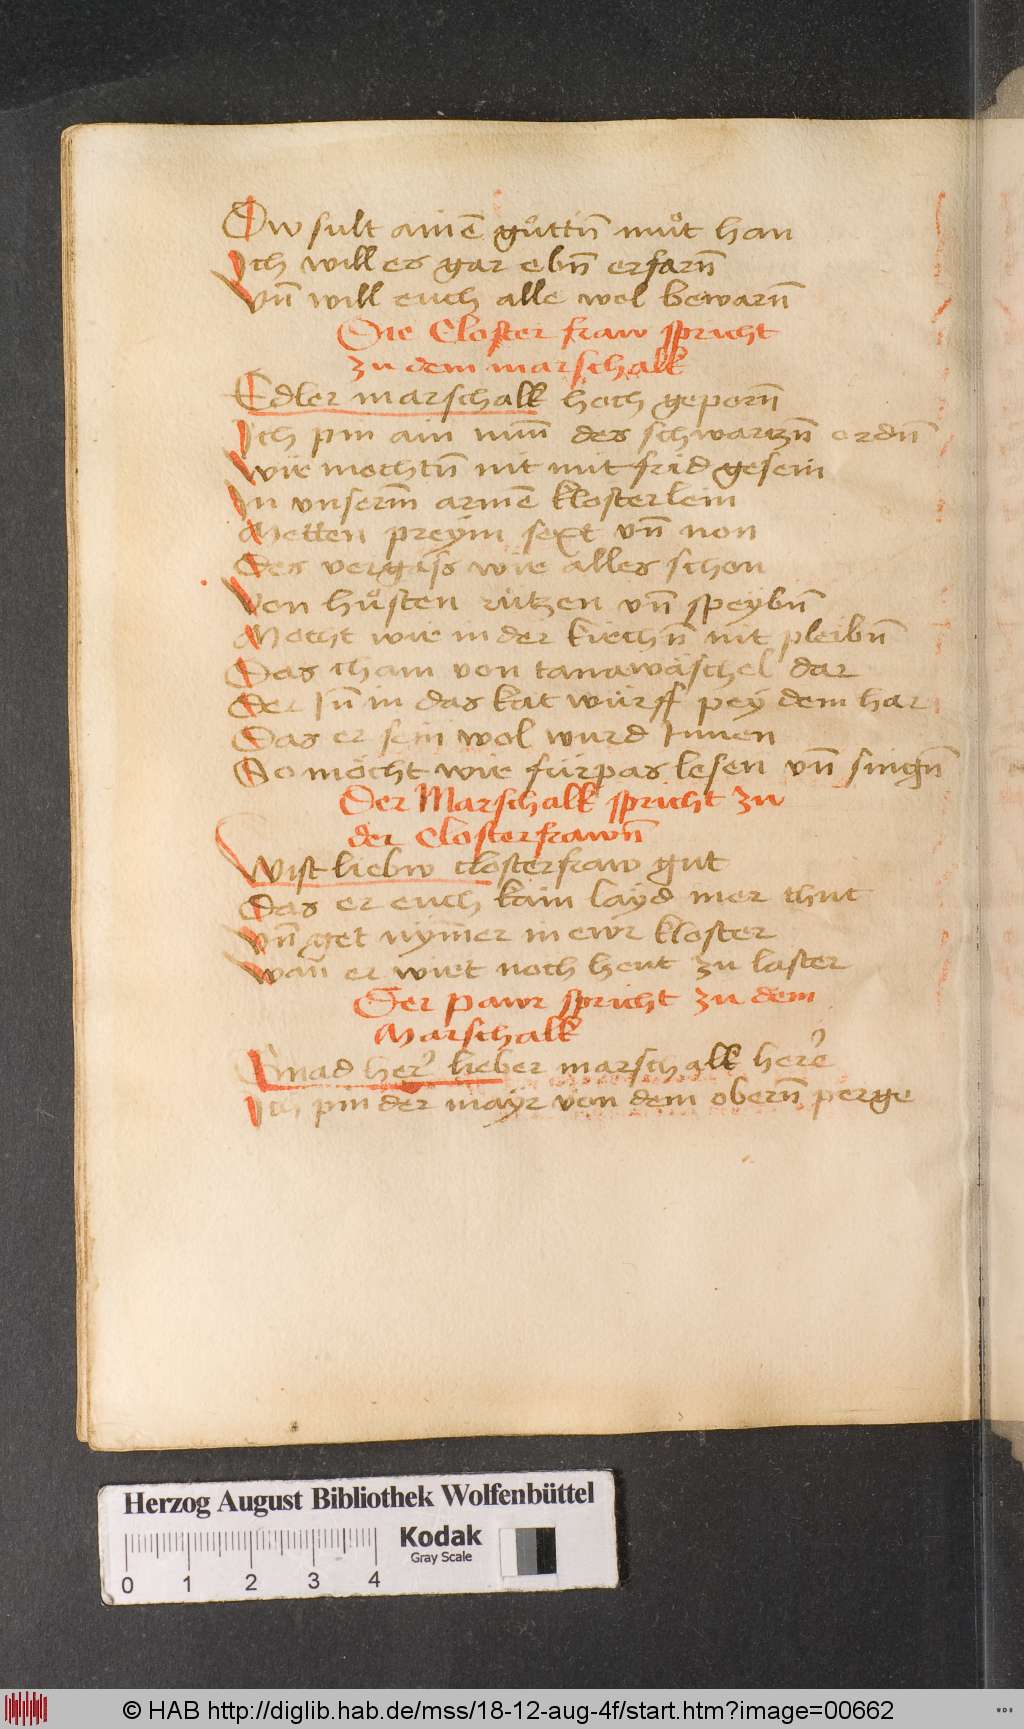 Dw sult ainē gůttn̄ můt han
Ich will es gar ebn̄ erfarn̄
Vn̄ will euch alle wol bewarn̄
Die Closter fraw spricht
zu dem marschalk
Edler marschalk hoch geporn̄
Ich pin ain nun̄ des schwartzn̄ ordn̄
Wie mochtn̄ nit mit frid gesein
In vnserm̄ armē klosterlein
Metten preym sext vn̄ non
Des vergass wir alles schon
Von hůsten rutzen vn̄ speybn̄
Mocht wir in der kirchn̄ nit pleibn̄
Das cham von tanawäschel dar
Der In̄ in das kat würff pey dem har
Das er sein wol wurd Innen
So möcht wir fürpas lesen vn̄ singn̄
Der Marschalk spricht zu
der Closterfrawn̄
Wist liebw closterfraw gut
Das er euch kain layd mer thut
Vn̄ get nym̄er in ewr kloster
Wan̄ er wirt noch heut zu laster
Der pawr spricht zu dem
Marschalk
Gnad her lieber marschalk here
Ich pin der mayr von dem obern̄ perge
Herzog August Bibliothek Wolfenbüttel
Kodak
Gray Scale
0 1 2 3 4
© HAB http://diglib.hab.de/mss/18-12-aug-4f/start.htm?image=00662